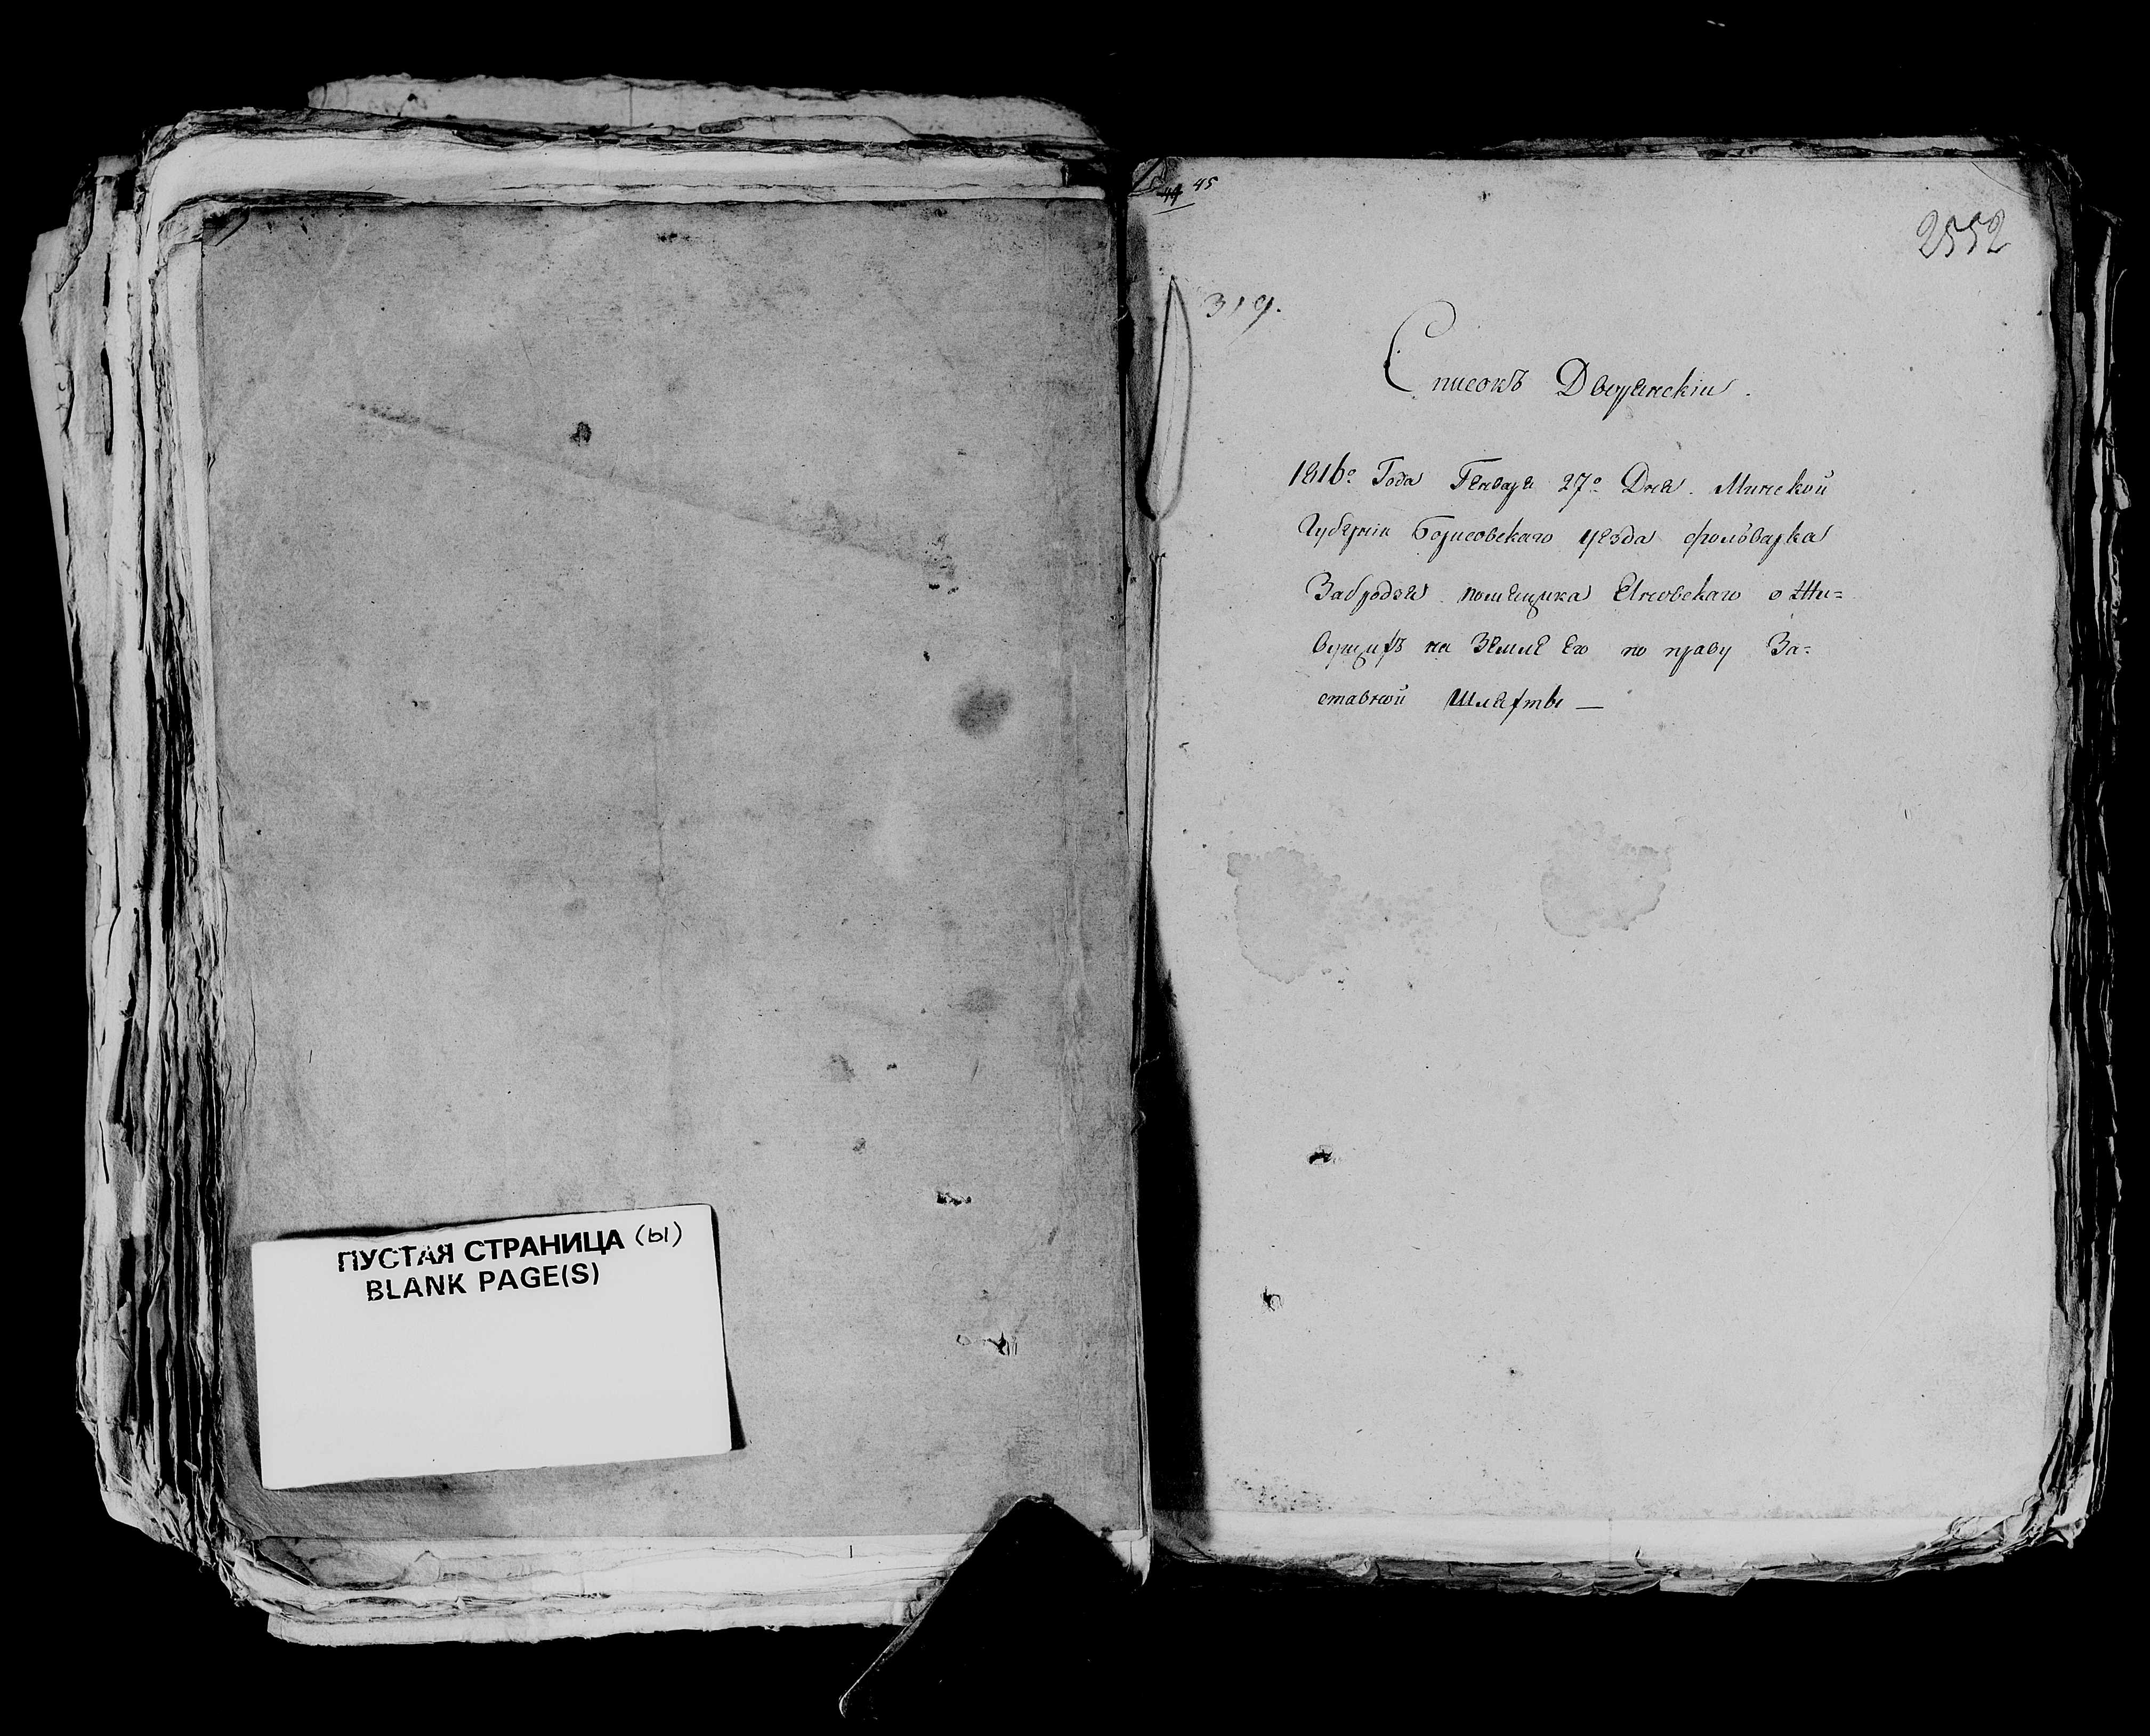 ПУСТАЯ СТРАНИЦА (Ы)
BLANK PAGE(S)
44 45
2552
319.
Списокъ Дворянскіи.
1816º Года Генваря 27º Дня. Минской
Губерніи Борисовскаго уезда фольварка
Забродзя помещика о Жи=
вущихъ на Земле Его по праву За=
ставной Шляхты —